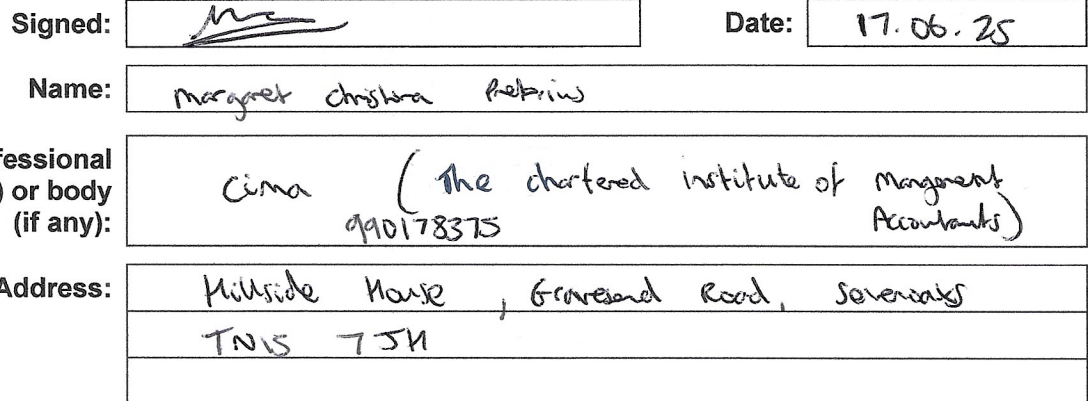 Signed:
Date: 17.06.25
Name: Margaret Christina Pretorius
fessional
) or body
(if any):
Cima (The chartered institute of Mangement
990178375 Accountants)
Address: Hillside House, Gravesend Road, Sevenoaks
TN15 7JH